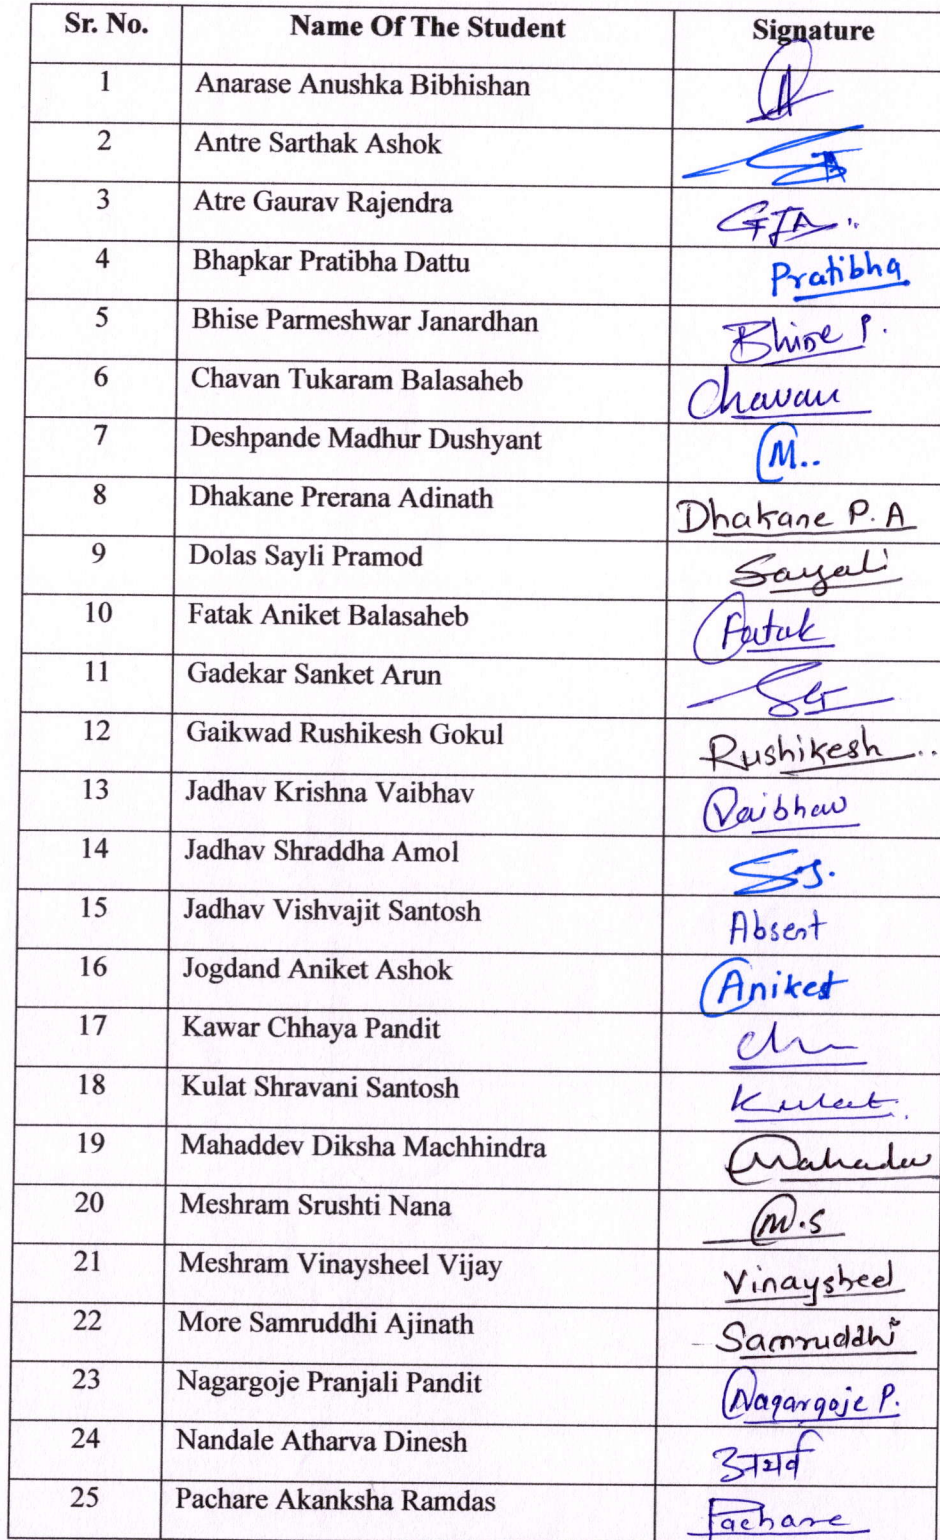 Sr. No. Name Of The Student Signature
1 Anarase Anushka Bibhishan
2 Antre Sarthak Ashok
3 Atre Gaurav Rajendra
4 Bhapkar Pratibha Dattu Pratibha
5 Bhise Parmeshwar Janardhan Bhise P.
6 Chavan Tukaram Balasaheb Chavan
7 Deshpande Madhur Dushyant M..
8 Dhakane Prerana Adinath Dhakane P.A
9 Dolas Sayli Pramod Sayali
10 Fatak Aniket Balasaheb Fatak
11 Gadekar Sanket Arun
12 Gaikwad Rushikesh Gokul Rushikesh ..
13 Jadhav Krishna Vaibhav Vaibhav
14 Jadhav Shraddha Amol
15 Jadhav Vishvajit Santosh Absent
16 Jogdand Aniket Ashok Aniket
17 Kawar Chhaya Pandit
18 Kulat Shravani Santosh Kulat.
19 Mahaddev Diksha Machhindra Mahadev
20 Meshram Srushti Nana M.S
21 Meshram Vinaysheel Vijay Vinaysheel
22 More Samruddhi Ajinath Samruddhi
23 Nagargoje Pranjali Pandit Nagargoje P.
24 Nandale Atharva Dinesh अथर्व
25 Pachare Akanksha Ramdas Pachare